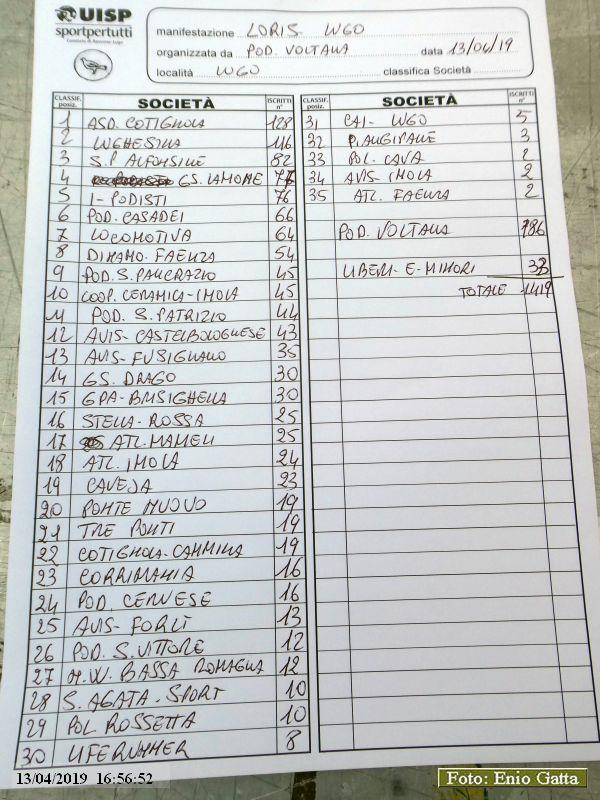 UISP
sportpertutti
manifestazione LORIS LUGO
organizzata da POD. VOLTANA data 13/04/19
località LUGO classifica Società
CLASSIF. posiz. SOCIETÀ ISCRITTI n°
1 ASD. COTIGNOLA 128
2 LUGHESINA 116
3 S.P ALFONSINE 82
4 GS. LAMONE 77
5 I-PODISTI 76
6 POD. CASADEI 66
7 LOCOMOTIVA 64
8 DINAMO-FAENZA 54
9 POD. S. PANCRAZIO 45
10 COOP. CERAMICA-IMOLA 45
11 POD. S. PATRIZIO 44
12 AVIS-CASTELBOLOGNESE 43
13 AVIS-FUSIGNANO 35
14 GS. DRAGO 30
15 GPA-BRISIGHELLA 30
16 STELLA-ROSSA 25
17 ATL. MAMELI 25
18 ATL. IMOLA 24
19 CAVEJA 23
20 PONTE NUOVO 19
21 TRE PONTI 19
22 COTIGNOLA-CAMMINA 19
23 CORRIMANIA 16
24 POD. CERVESE 16
25 AVIS-FORLÌ 13
26 POD. S. VITTORE 12
27 N.W. BASSA ROMAGNA 12
28 S. AGATA-SPORT 10
29 POL ROSSETTA 10
30 LIFERUNNER 8
CLASSIF. posiz. SOCIETÀ ISCRITTI n°
31 CAI-LUGO 5
32 PIANGIPANE 3
33 POL. CAVA 2
34 AVIS-IMOLA 2
35 ATL. FAENZA 2
POD. VOLTANA 186
LIBERI-E-MINORI 33
TOTALE 1419
13/04/2019 16:56:52
Foto: Enio Gatta